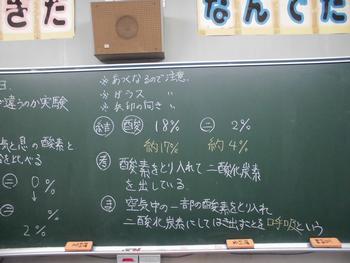 きた
なんでた
※あつくなるので注意
違うのか実験
※ガラス 〃
※矢印の向き 〃
結 酸 18% 二 2%
気と息の酸素と
約17% 約4%
を比べる
考 酸素をとり入れて二酸化炭素
を出している。
二 0%
ま 空気中の一部の酸素をとり入れ
二酸化炭素にしてはき出すことを呼吸という
2%